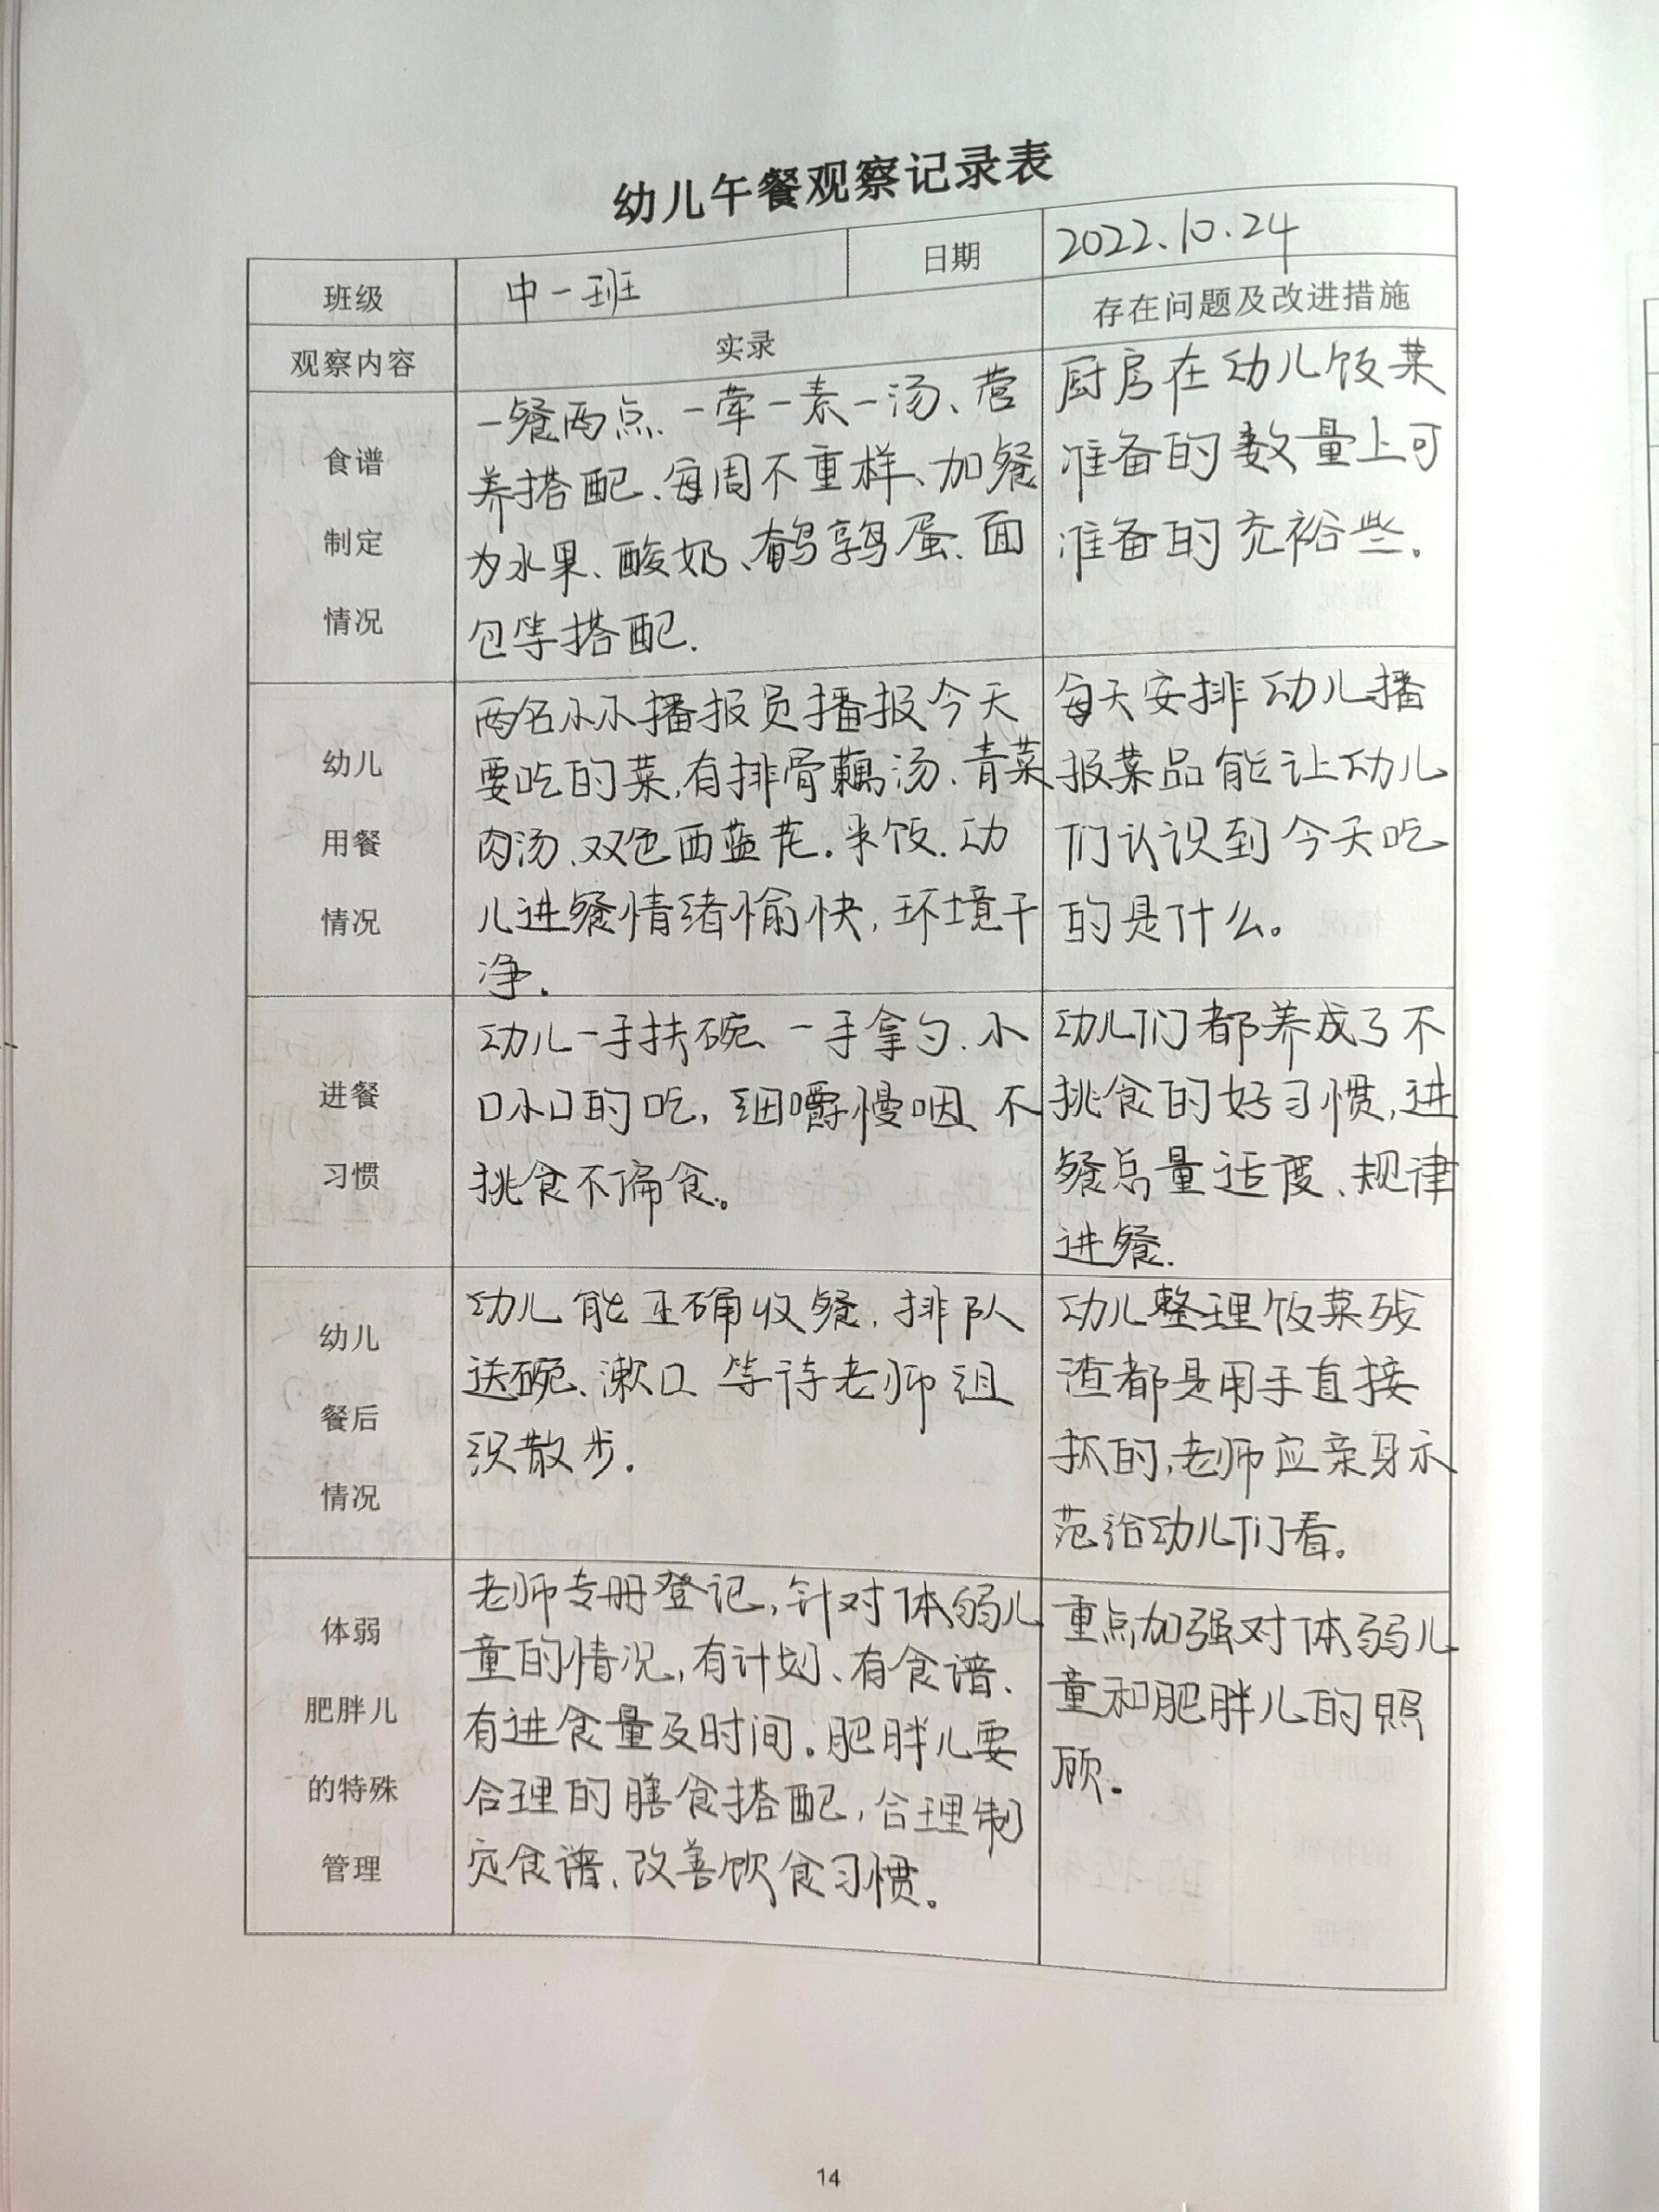 幼儿午餐观察记录表
班级
中一班
日期
2022.10.24
观察内容
实录
存在问题及改进措施
食谱
制定
情况
一餐两点、一荤一素一汤、营
养搭配、每周不重样、加餐
为水果、酸奶、鹌鹑蛋、面
包等搭配.
厨房在幼儿饭菜
准备的数量上可
准备的充裕些。
幼儿
用餐
情况
两名小小播报员播报今天
要吃的菜,有排骨藕汤、青菜
肉汤、双色西蓝花。米饭.幼
儿进餐情绪愉快,环境干
净.
每天安排幼儿播
报菜品能让幼儿
们认识到今天吃
的是什么。
进餐
习惯
幼儿一手扶碗、一手拿勺、小
口小口的吃,细嚼慢咽 不
挑食不偏食。
幼儿们都养成了不
挑食的好习惯,进
餐总量适度、规律
进餐.
幼儿
餐后
情况
幼儿能正确收餐,排队
送碗、漱口 等待老师组
织散步.
幼儿整理饭菜残
渣都是用手直接
抓的,老师应亲身示
范给幼儿们看。
体弱
肥胖儿
的特殊
管理
老师专册登记,针对体弱儿
童的情况,有计划、有食谱、
有进食量及时间。肥胖儿要
合理的膳食搭配,合理制
定食谱、改善饮食习惯。
重点加强对体弱儿
童和肥胖儿的照
顾。
14